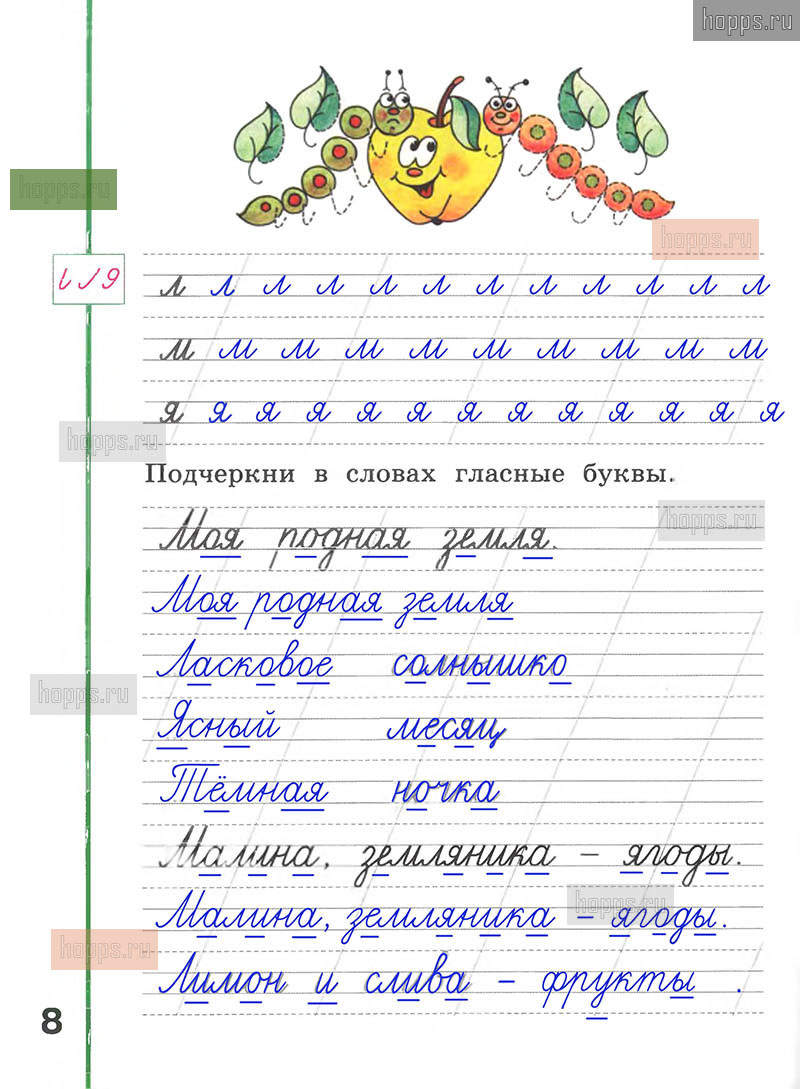 hopps.ru
hopps.ru
hopps.ru
л л л л л л л л л л л л
м м м м м м м м м м
я я я я я я я я я я я я я
hopps.ru
Подчеркни в словах гласные буквы.
hopps.ru
Моя родная земля.
Моя родная земля
Ласковое солнышко
hopps.ru
Ясный месяц
Тёмная ночка
Малина, земляника – ягоды.
hopps.ru
Малина, земляника – ягоды.
hopps.ru
Лимон и слива – фрукты .
8